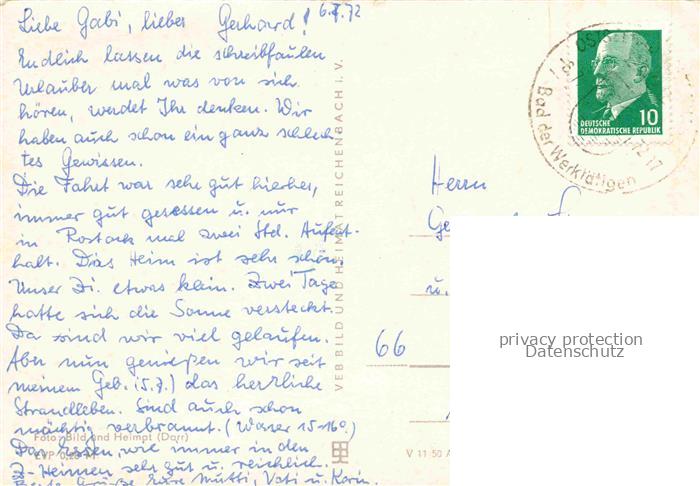 6.7.72
Liebe Gabi, lieber Gerhard!
Endlich lassen die schreibfaulen
Urlauber mal was von sich
hören, werdet Ihr denken. Wir
haben auch schon ein ganz schlech-
tes Gewissen.
Die Fahrt war sehr gut hierher,
immer gut gesessen u. nur
in Rostock mal zwei Std. Aufent-
halt. Das Heim ist sehr schön.
Unser Zi. etwas klein. Zwei Tage
hatte sich die Sonne versteckt.
Da sind wir viel gelaufen.
Aber nun genießen wir seit
meinem Geb. (5.7.) das herrliche
Strandleben. Sind auch schon
mächtig verbrannt. (Wasser 15-16°)
Das Essen, wie immer in den
Z-Heimen sehr gut u. reichlich.
Grüße Eure Mutti, Vati u. Karin.
Foto: Bild und Heimat (Darr)
EVP 0,20 M
VEB BILD UND HEIMAT REICHENBACH I. V.
V 11 50 A
DEUTSCHE
DEMOKRATISCHE REPUBLIK
10
Bad der Werktätigen
Herrn
u.
66
privacy protection
Datenschutz